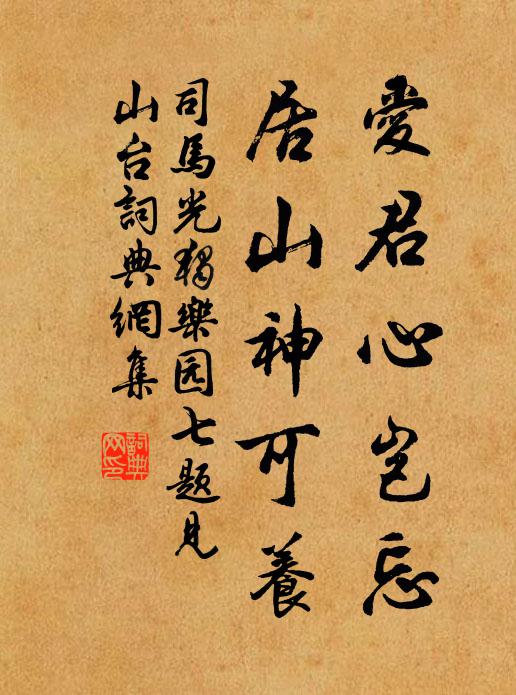 愛君心岂忘
居山神可養
司馬光独樂园七题見
山台詞典網集
詞典
网印